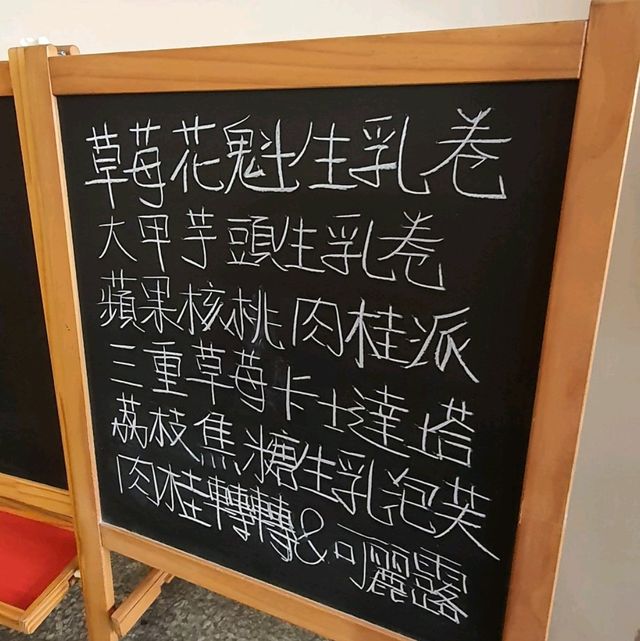 草莓花魁生乳卷
大甲芋頭生乳卷
蘋果核桃肉桂派
三重草莓卡士達塔
荔枝焦糖生乳泡芙
肉桂轉轉&可麗露